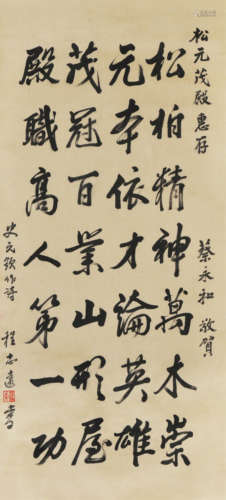 松元茂殿 惠存
蔡永和 敬賀
松柏精神萬木崇
元本依才論英雄
茂冠百業山形屋
殿職高人第一功
史元欽作詩
程志遠書